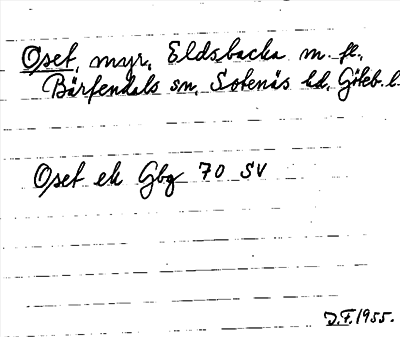 Oset, myr, Eldsbacka m. fl.,
Bärfendals sn, Sotenäs hd, Göteb. l.
Oset ek Gbg 70 SV
D.F. 1955.